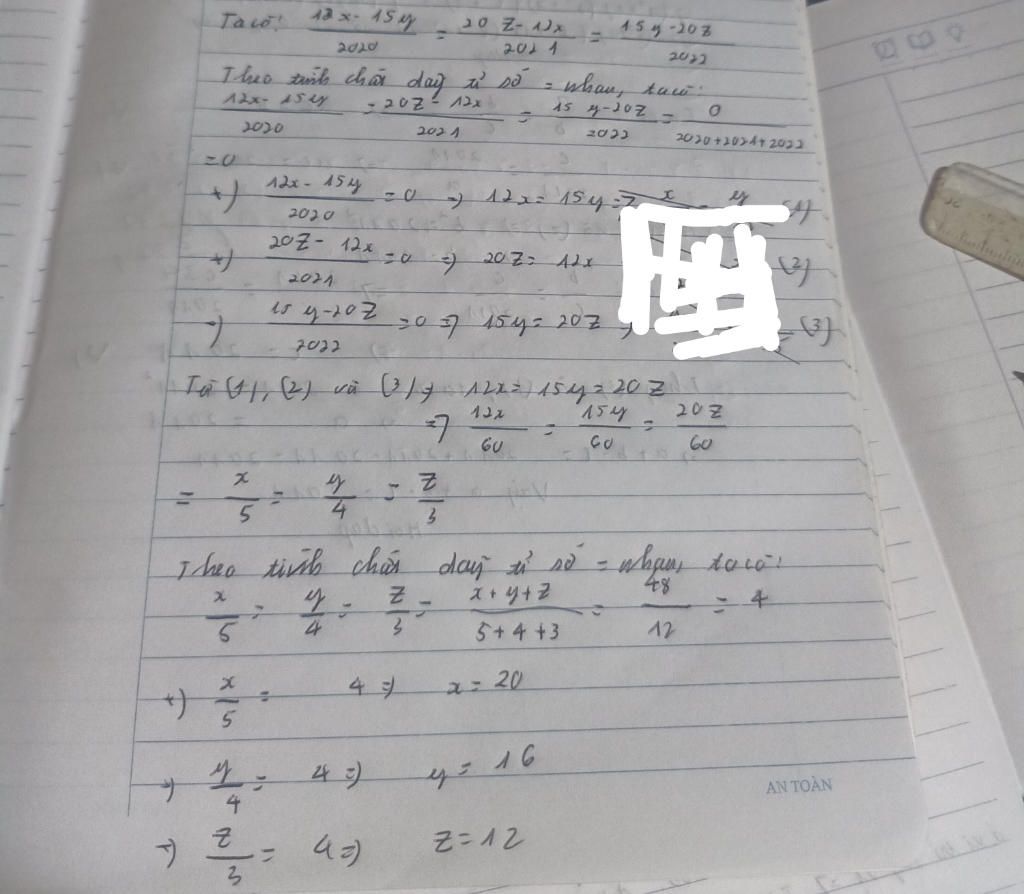 Ta có: 12x - 15y / 2020 = 20Z - 12x / 2021 = 15y - 20Z / 2022
Theo tính chất dãy tỉ số = nhau, ta có:
12x - 15y / 2020 = 20Z - 12x / 2021 = 15y - 20Z / 2022 = 0 / 2020+2021+2022
= 0
+) 12x - 15y / 2020 = 0 => 12x = 15y => x = y (1)
+) 20Z - 12x / 2021 = 0 => 20Z = 12x (2)
+) 15y - 20Z / 2022 = 0 => 15y = 20Z (3)
Từ (1), (2) và (3) => 12x = 15y = 20Z
=> 12x / 60 = 15y / 60 = 20Z / 60
= x / 5 = y / 4 = Z / 3
Theo tính chất dãy tỉ số = nhau, ta có:
x / 5 = y / 4 = Z / 3 = x+y+Z / 5+4+3 = 48 / 12 = 4
+) x / 5 = 4 => x = 20
+) y / 4 = 4 => y = 16
+) Z / 3 = 4 => Z = 12
AN TOÀN